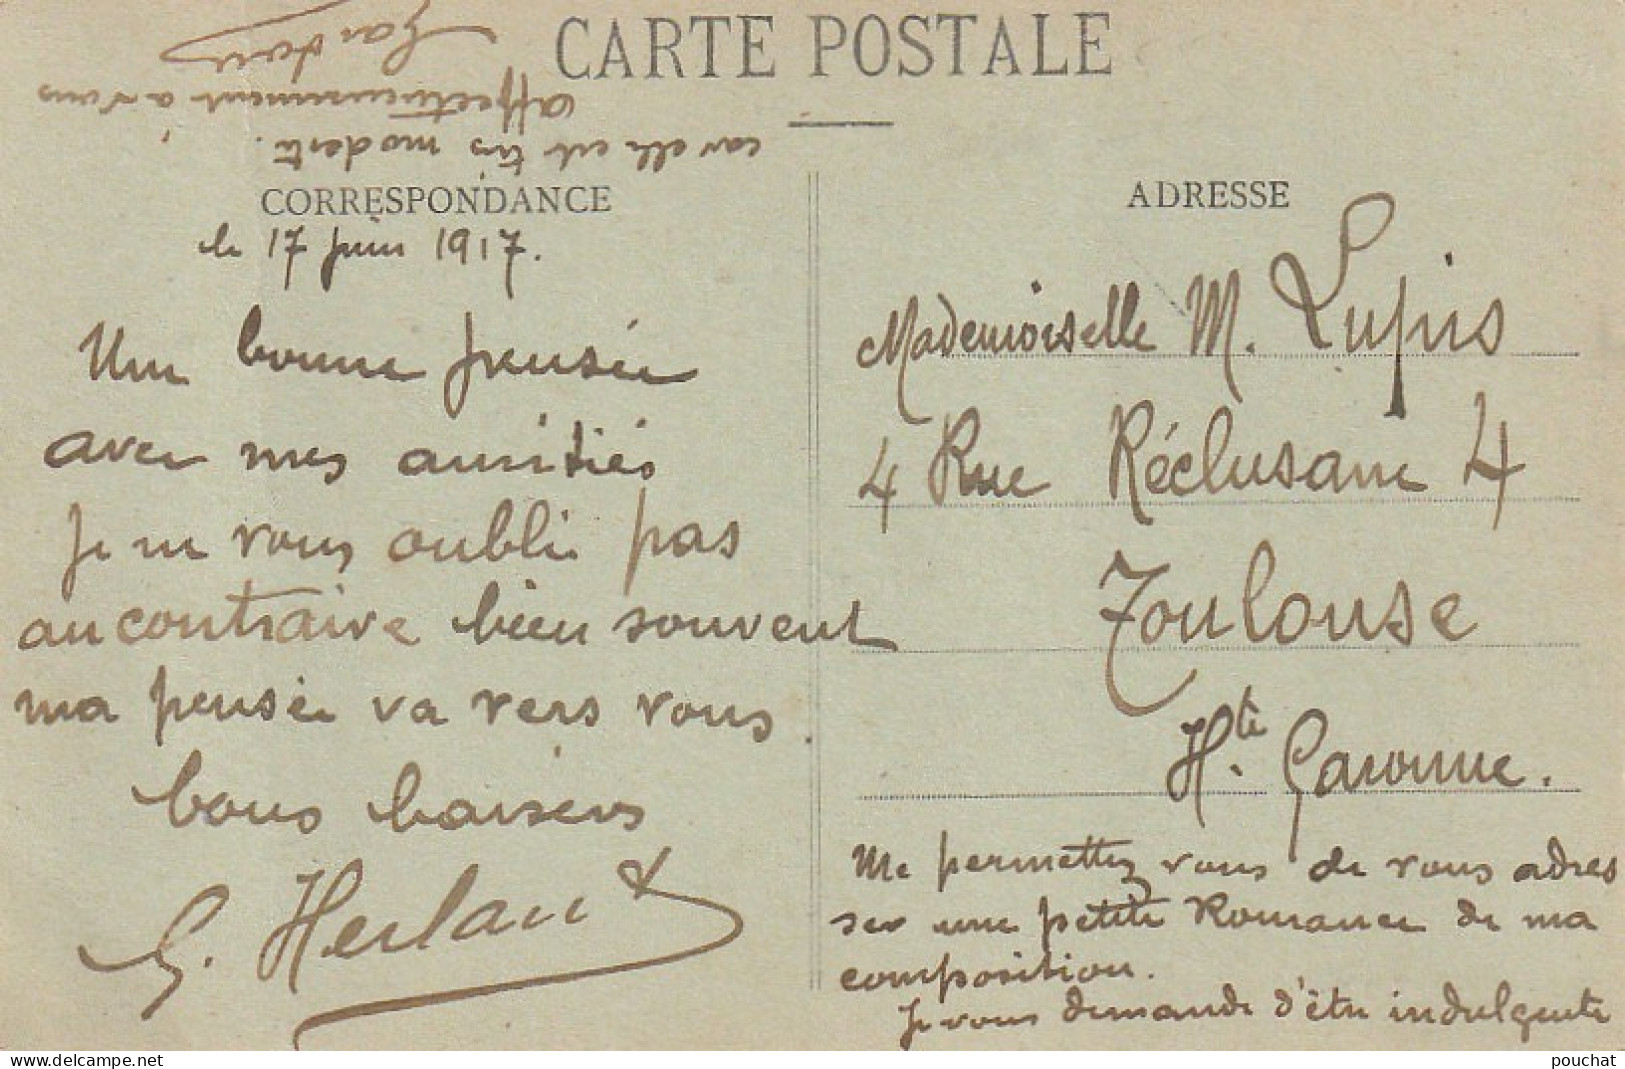 CARTE POSTALE
CORRESPONDANCE
le 17 juin 1917.
Une bonne pensée
avec mes amitiés
Je ne vous oublie pas
au contraire bien souvent
ma pensée va vers vous.
bons baisers
G. Herlant
ADRESSE
Mademoiselle M. Lupis
4 Rue Réclusane 4
Toulouse
Hte. Garonne.
Me permettez vous de vous adres
ser une petite Romance de ma
composition.
Je vous demande d'être indulgente
car elle est très modeste.
affectueusement à vous
pouchat